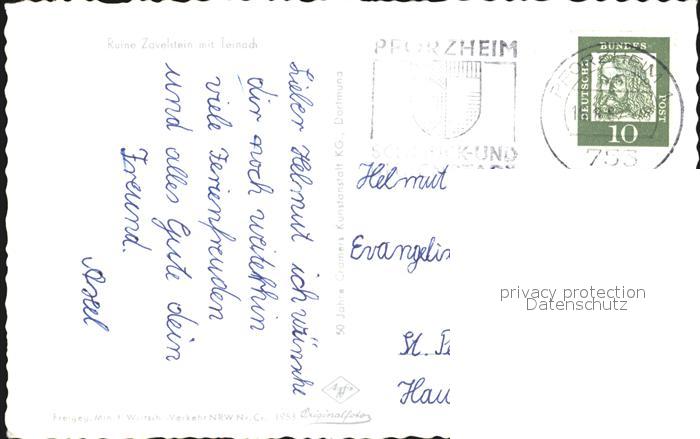 Ruine Zavelstein mit Teinach
Lieber Helmut ich wünsche
dir noch weiterhin
viele Ferienfreuden
und alles Gute dein
Freund.
Axel
50 Jahre Cramers Kunstanstalt KG. Dortmund
PFORZHEIM
SCHMUCK-UND
PFORZHEIM
753
DEUTSCHE
BUNDES
POST
10
Helmut
Evangelis
St. Pe
Hau
privacy protection
Datenschutz
Freigeg. Min. f. Wirtsch. Verkehr NRW Nr. Cr.
Originalfoto